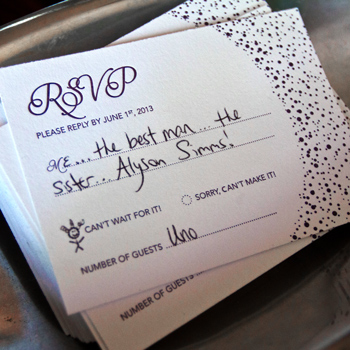 RSVP
PLEASE REPLY BY JUNE 1ST, 2013
ME... the best man... the
sister... Alyson Simms!
CAN'T WAIT FOR IT! SORRY, CAN'T MAKE IT!
NUMBER OF GUESTS Uno
NUMBER OF GUESTS